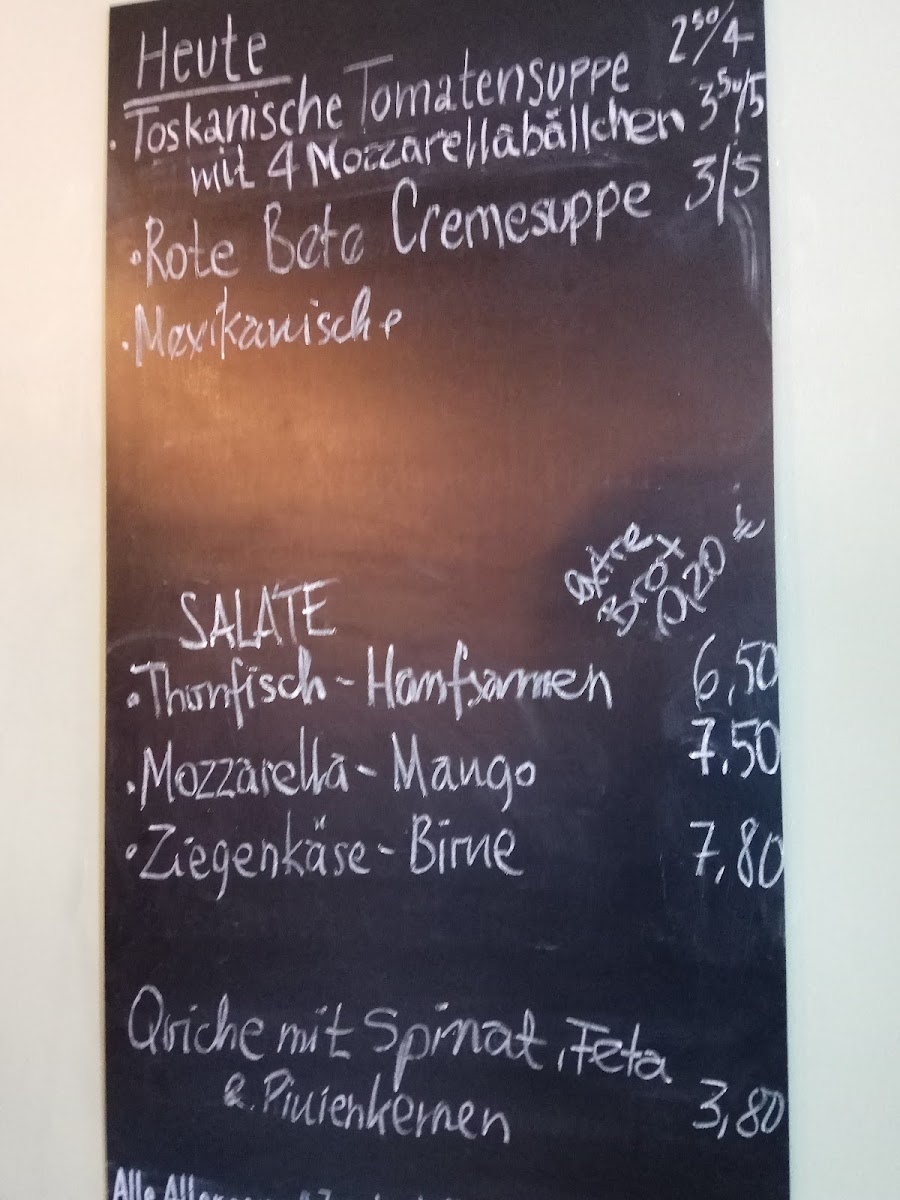 Heute
· Toskanische Tomatensuppe 2⁵⁰/4
mit 4 Mozzarellabällchen 3⁵⁰/5
· Rote Bete Cremesuppe 3/5
· Mexikanische
extra
Brot
0,20 €
SALATE
· Thunfisch - Hanfsamen 6,50
· Mozzarella - Mango 7.50
· Ziegenkäse - Birne 7,80
Quiche mit Spinat, Feta
& Pinienkernen 3,80
Alle